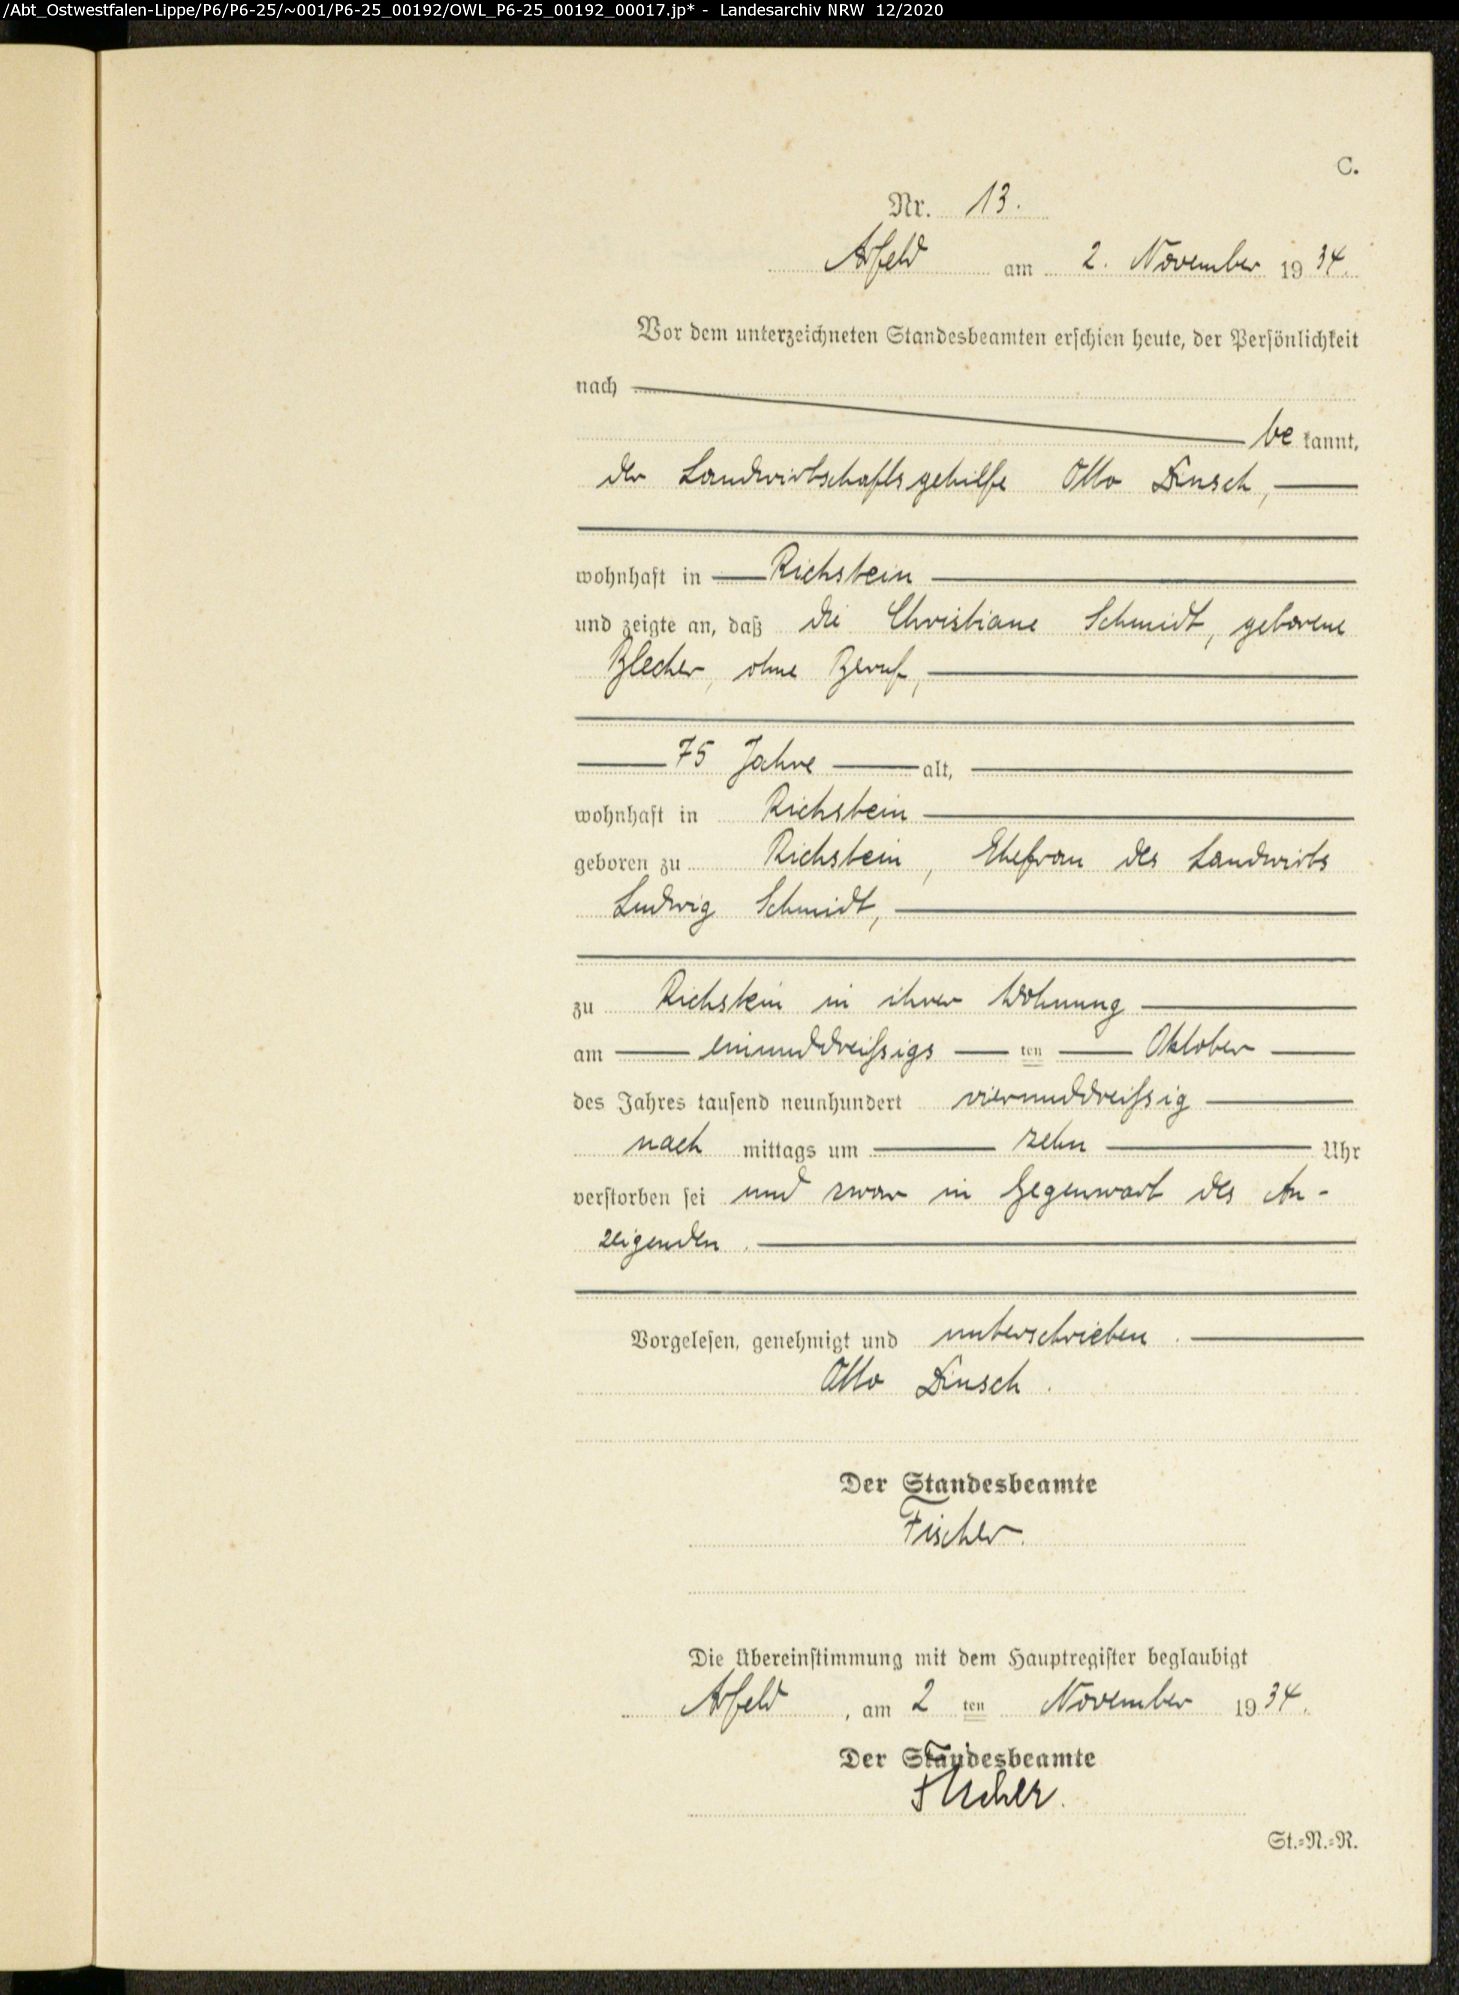 /Abt_Ostwestfalen-Lippe/P6/P6-25/~001/P6-25_00192/OWL_P6-25_00192_00017.jp* - Landesarchiv NRW 12/2020
C.
Nr. 13.
Arfeld am 2. November 1934.
Vor dem unterzeichneten Standesbeamten erschien heute, der Persönlichkeit
nach
be kannt,
der Landwirtschaftsgehilfe Otto Dinsch,
wohnhaft in Richstein
und zeigte an, daß die Christiane Schmidt, geborene
Blecher, ohne Beruf,
75 Jahre alt,
wohnhaft in Richstein
geboren zu Richstein, Ehefrau des Landwirts
Ludwig Schmidt,
zu Richstein in ihrer Wohnung
am einunddreißigs ten Oktober
des Jahres tausend neunhundert vierunddreißig
nach mittags um zehn Uhr
verstorben sei und zwar in Gegenwart des An-
zeigenden.
Vorgelesen, genehmigt und unterschrieben.
Otto Dinsch.
Der Standesbeamte
Fischer.
Die Übereinstimmung mit dem Hauptregister beglaubigt
Arfeld, am 2 ten November 1934.
Der Standesbeamte
Fischer.
St.=N.=R.